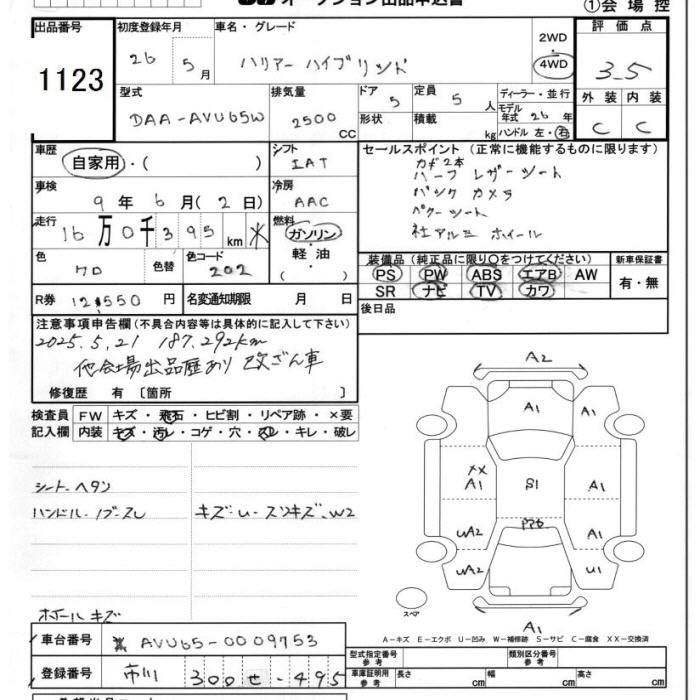 オークション出品申込書
①会場控
出品番号
1123
初度登録年月
26年 5月
車名・グレード
ハリアー ハイブリッド
2WD
4WD
評価点
3.5
型式
DAA-AVU65W
排気量
2500
CC
ドア
5
定員
5
人
ディーラー・並行
モデル
年式 26年
形状
積載
kg
ハンドル 左・右
外装
内装
C
C
車歴
自家用・( )
シフト
IAT
セールスポイント (正常に機能するものに限ります)
カギ2本
ハーフレザーシート
バックカメラ
パワーシート
社アルミホイール
車検
9年 6月(2日)
冷房
AAC
走行
16万0千395km
燃料
ガソリン
軽油
( )
色
クロ
色替
色コード
202
装備品(純正品に限り○をつけてください)
PS PW ABS エアB AW
SR ナビ TV カワ
新車保証書
有・無
R券 12,550 円
名変通知期限 月 日
後日品
注意事項申告欄(不具合内容等は具体的に記入して下さい)
2025.5.21 187,292km
他会場出品歴あり 改ざん車
修復歴 有 〔箇所 〕
検査員
記入欄
FW キズ・飛石・ヒビ割・リペア跡・×要
内装 キズ・汚レ・コゲ・穴・スレ・キレ・破レ
シートヘタリ
キズ・U・スリキズ・W2
ホイールキズ
A2
A1
A1
A1
XX
A1
S1
A1
UA2
A1
UA2
U1
スペア
A1
A-キズ E-エクボ U-凹み W-補修跡 S-サビ C-腐食 XX-交換済
車台番号
AVU65-0009753
登録番号
市川 300 せ-495
型式指定番号
参考
類別区分番号
参考
車庫証明用
参考
長さ cm 幅 cm 高さ cm